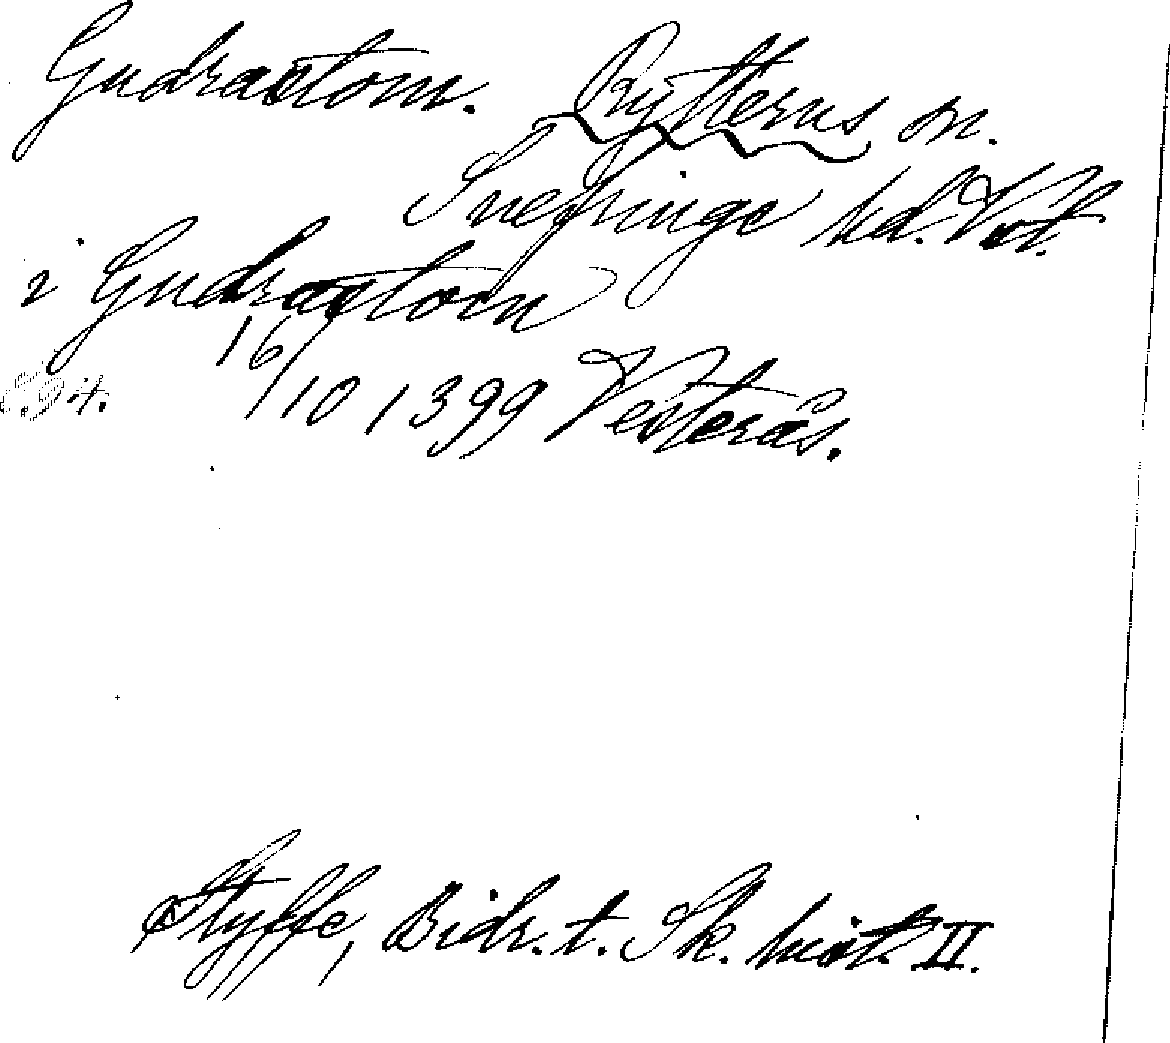 Gudrastom. Rytterns sn.
Snefringe hd. Vst.
i Gudrastom
16/10 1399 Vesterås.
Styffe, Bidr. t. Sk. hist. II.